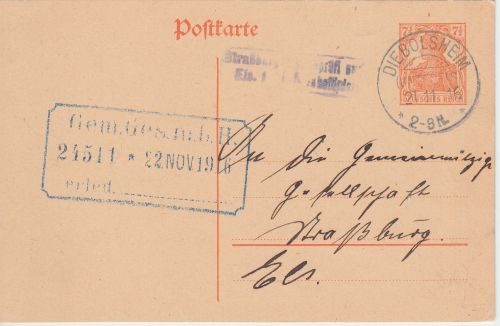 Postkarte
7½ 7½
Straßburg geprüft
Els.
DIEBOLSHEIM
21.11.16
* 2-3N. *
Gem.Ges.m.b.H.
24511 * 22NOV1916
erled.
An die Gemeinnützige
Gesellschaft
Straßburg.
Els.